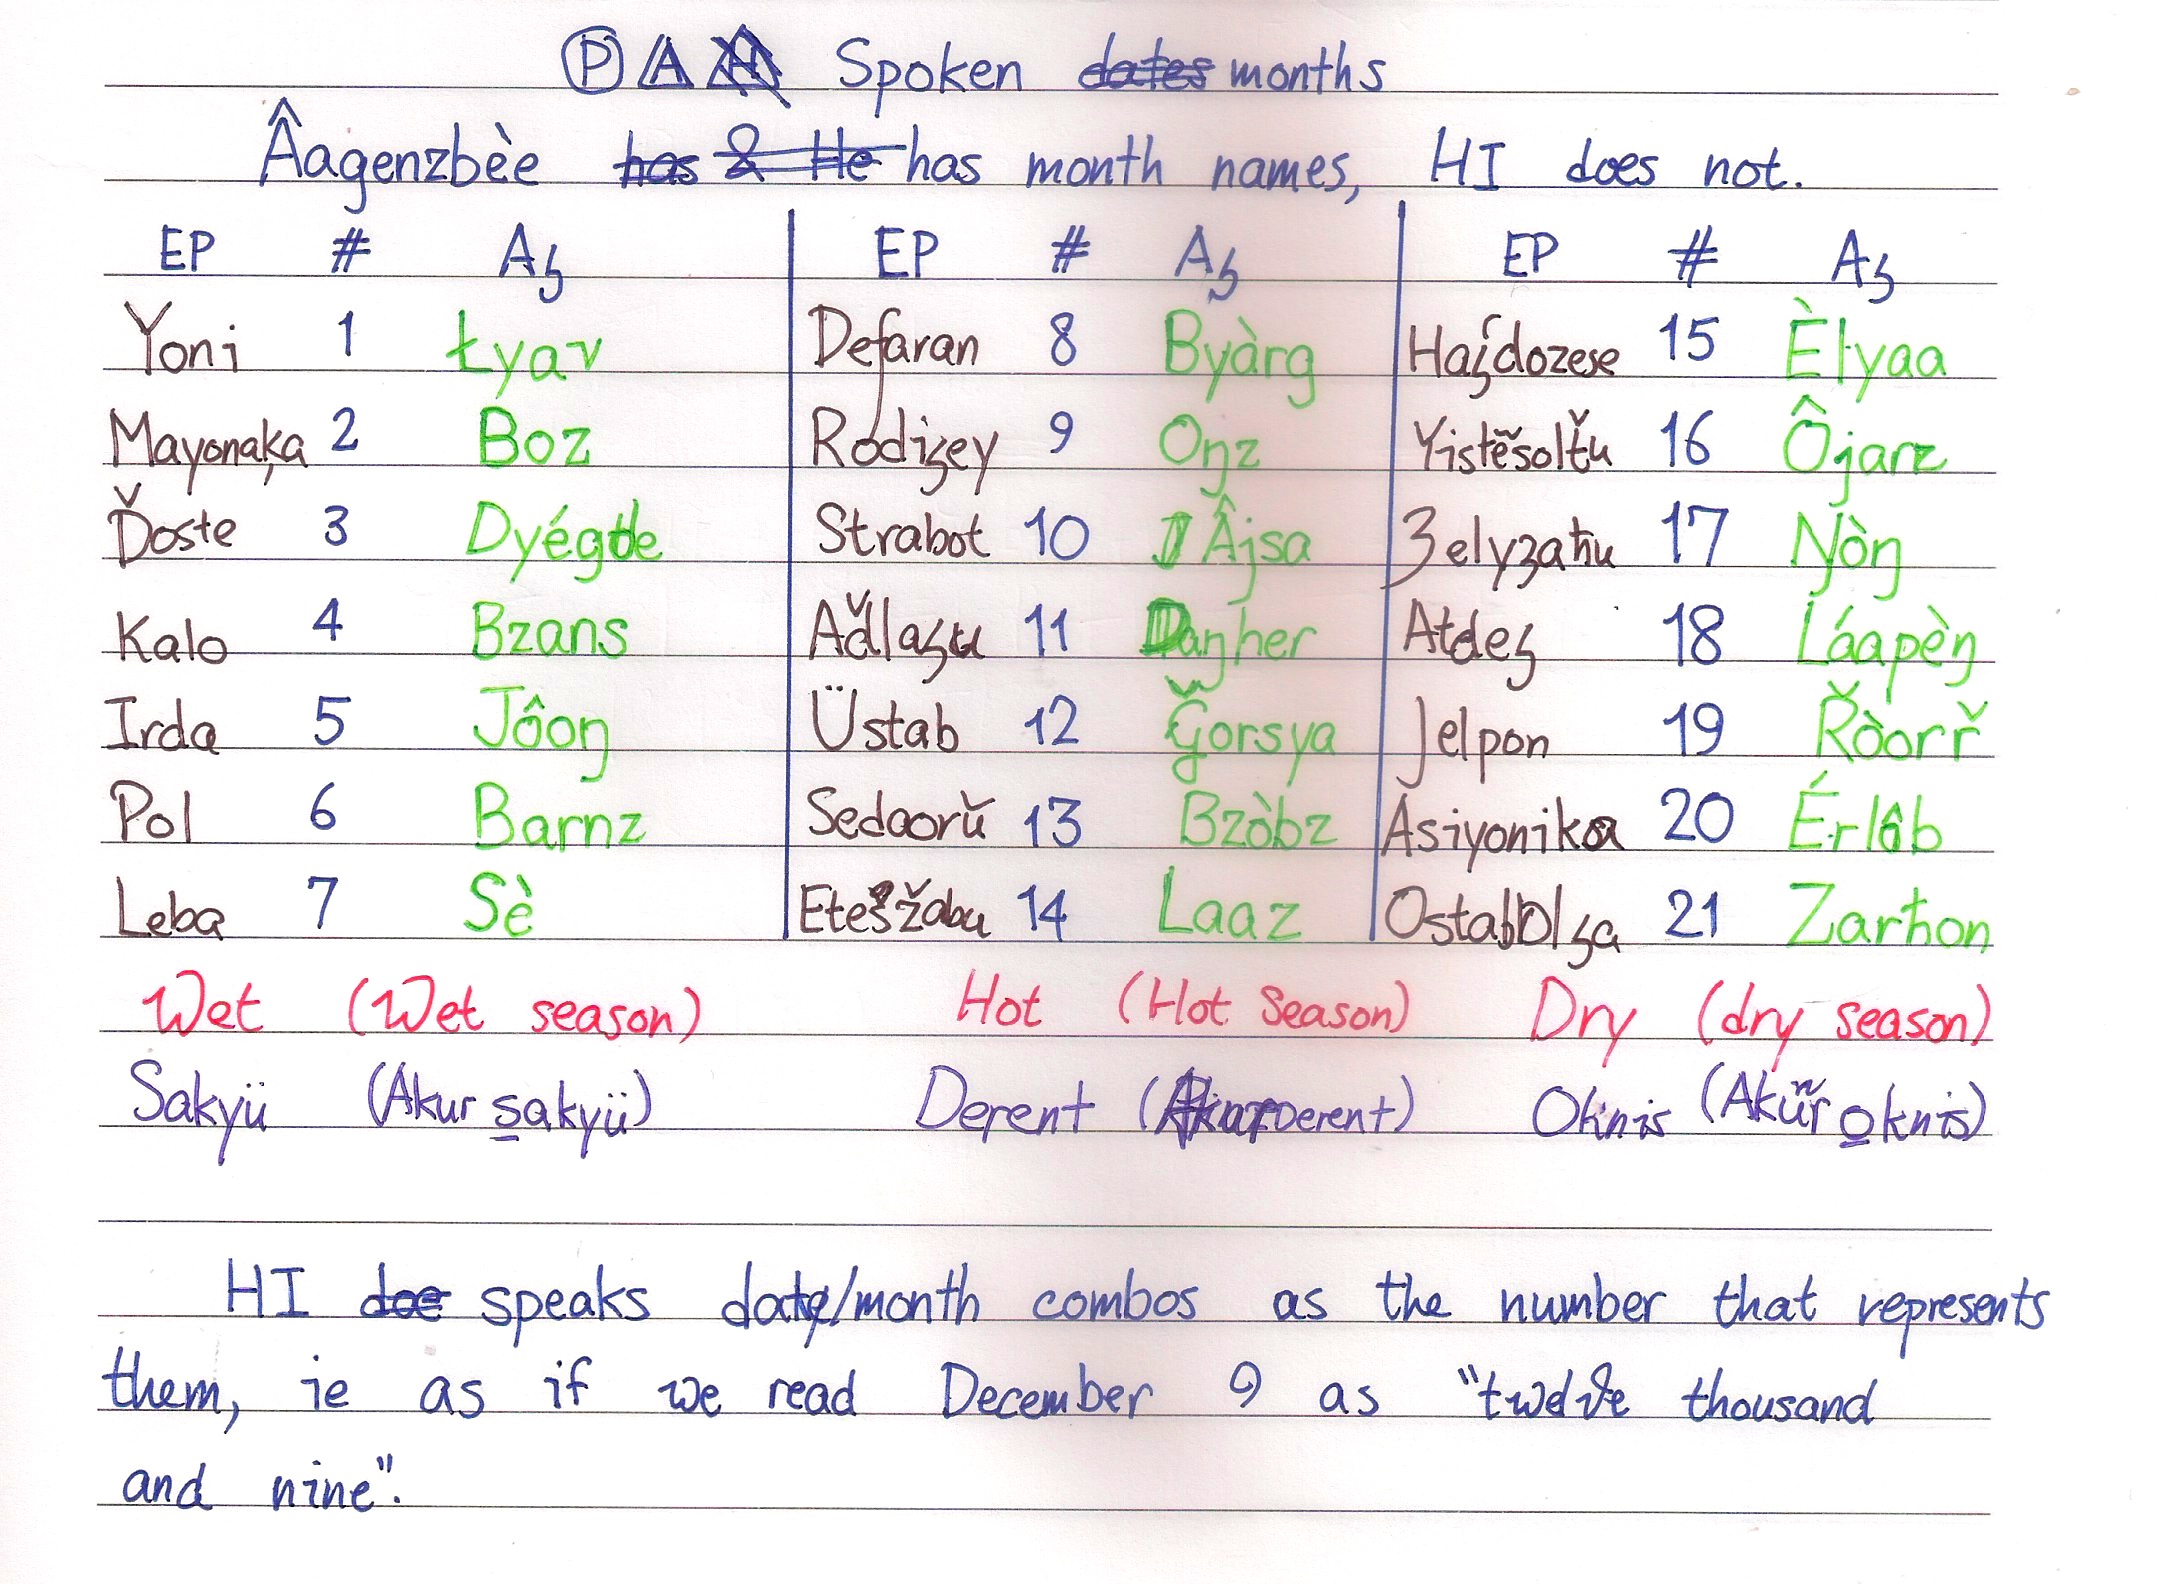 Ⓟ A Spoken dates months
Âagenzbèe has & He has month names, HI does not.
EP # Aʒ EP # Aʒ EP # Aʒ
Yoni 1 Łyav Defaran 8 Byàrg Haʒ́dozese 15 Èłyaa
Mayonaķa 2 Boz Rodiʒey 9 Oŋz Yistẽsolťu 16 Ôjarz
Ďoste 3 Dyégde Strabot 10 Âjsa Ʒelyʒaħu 17 Ŋòŋ
Kalo 4 Bzans Aďlaʒu 11 Daŋher Atdeʒ 18 Láapèŋ
Irda 5 Jôoŋ Üstab 12 Ğorsya Jelpon 19 Řòorř
Pol 6 Barnz Sedaorŭ 13 Bzòbz Asiyonika 20 Érlôb
Leba 7 Sè Etešžabu 14 Laaz Ostabolʒa 21 Zarħon
Wet (Wet season) Hot (Hot season) Dry (dry season)
Sakyü (Akur sakyü) Derent (Akur Derent) Oknis (Akũr oknis)
HI doe speaks date/month combos as the number that represents
them, ie as if we read December 9 as "twelve thousand
and nine".